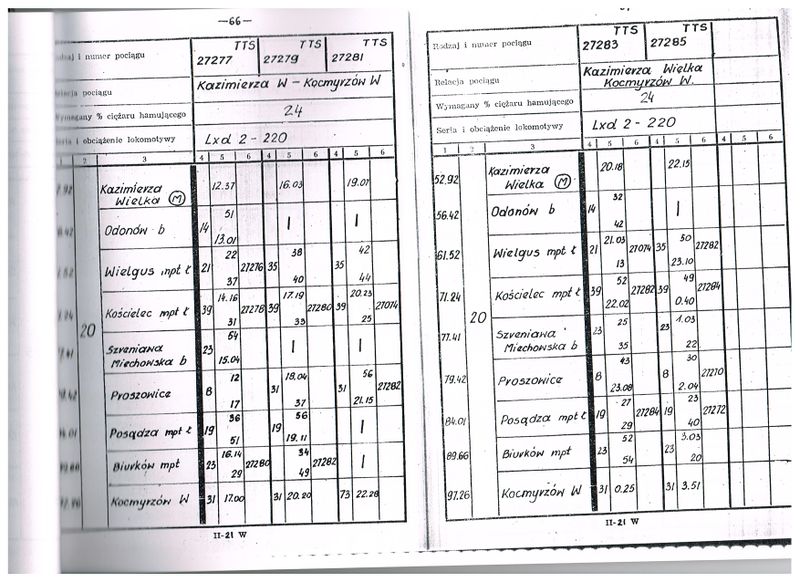 —66—
TTS TTS TTS
i numer pociągu 27277 27279 27281
pociągu Kazimierza W – Kocmyrzów W
Wymagany % ciężaru hamującego 24
Seria i obciążenie lokomotywy Lxd 2 - 220
1 2 3 4 5 6 4 5 6 4 5 6
Kazimierza Wielka (M) 12.37 16.03 19.01
Odonów b 14 51 13.01 | |
Wielgus mpt ł 21 22 37 27276 35 38 40 35 42 44
20
Kościelec mpt ł 39 14.16 31 27278 39 17.19 33 27280 39 20.23 25 27074
Szreniawa Miechowska b 23 54 15.04 | |
Proszowice 8 12 17 31 18.04 37 31 56 21.15 27282
Posądza mpt ł 19 36 51 19 56 19.11 |
Biurków mpt 23 16.14 29 27280 34 49 27282 |
Kocmyrzów W 31 17.00 31 20.20 73 22.28
II-21 W
TTS TTS
Rodzaj i numer pociągu 27283 27285
Relacja pociągu Kazimierza Wielka
Kocmyrzów W.
Wymagany % ciężaru hamującego 24
Seria i obciążenie lokomotywy Lxd 2 - 220
1 2 3 4 5 6 4 5 6 4 5 6
52.92 Kazimierza Wielka (M) 20.18 22.15
56.42 Odonów b 14 32 42 |
61.52 Wielgus mpt ł 21 21.03 13 27074 35 50 23.10 27282
71.24 Kościelec mpt ł 39 52 22.02 27282 39 49 0.40 27284
20
77.41 Szreniawa Miechowska b 23 25 35 23 1.03 22
79.42 Proszowice 8 43 23.08 8 30 2.04 27270
84.01 Posądza mpt ł 19 27 29 27284 19 23 40 27272
89.66 Biurków mpt 23 52 54 23 3.03 20
97.26 Kocmyrzów W 31 0.25 31 3.51
II-21 W